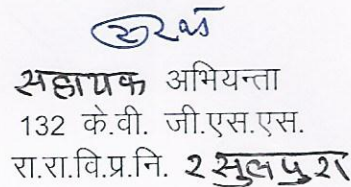 सहायक अभियन्ता
132 के.वी. जी.एस.एस.
रा.रा.वि.प्र.नि. रसुलपुरा